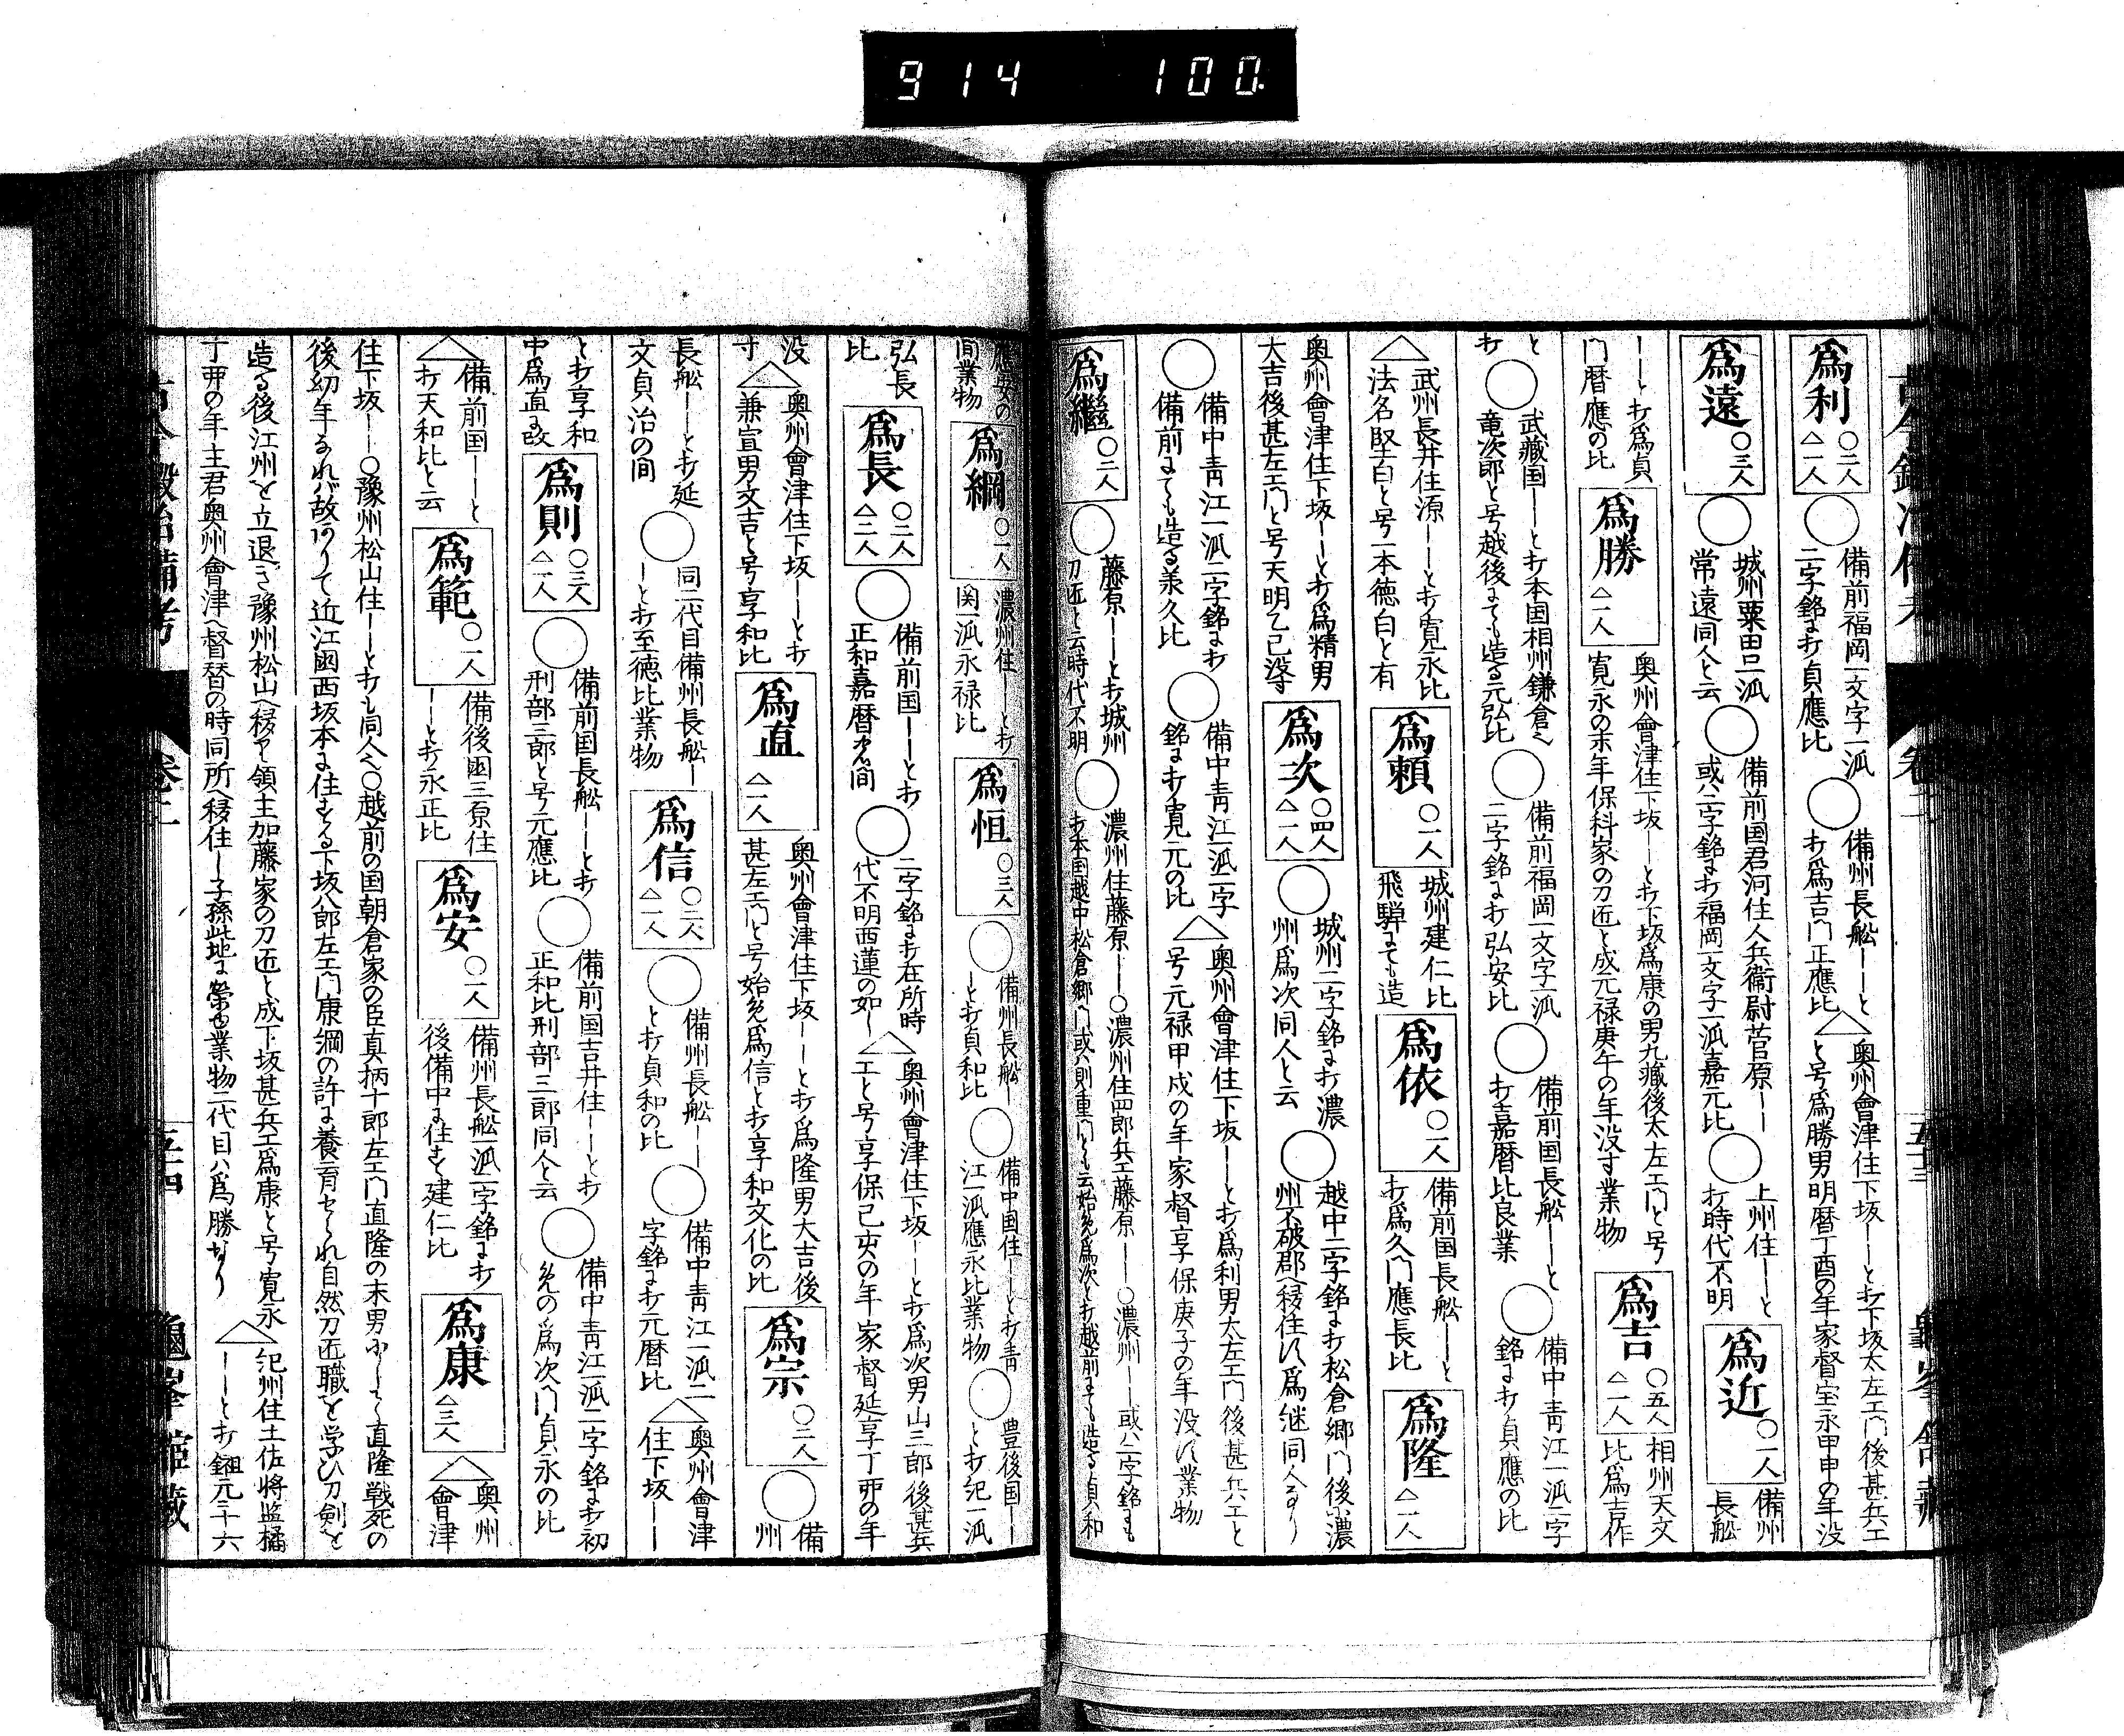 914 100
爲利 ○二人 △一人
備前福岡一文字一派
二字銘ニ打貞應比
備州長舩――と
打爲吉門正應比
奥州會津住下坂――と打下坂太左エ門後甚兵エ
と号爲勝男明暦丁酉の年家督宝永甲申の年没
爲遠 ○三人
城州粟田口一派
常遠同人と云
備前国君河住人兵衛尉菅原――
或ハ二字銘ニ打福岡一文字一派嘉元比
上州住――と
打時代不明
爲近 ○一人
備州
長舩
――と打爲貞
門暦應の比
爲勝 △一人
奥州會津住下坂――と打下坂爲康の男九藏後太左エ門と号
寛永の末年保科家の刀匠と成元禄庚午の年没す業物
爲吉 ○五人 △一人
相州天文
比爲吉作
と
打
武藏国――と打本国相州鎌倉へ
竜次郎と号越後にても造る元弘比
備前福岡一文字一派
二字銘ニ打弘安比
備前国長舩――と
打嘉暦比良業
備中青江一派二字
銘ニ打貞應の比
武州長井住源――と打寛永比
法名堅白と号一本徳白と有
爲頼 ○一人
城州建仁比
飛騨にても造
爲依 ○一人
備前国長舩――と
打爲久門應長比
爲隆 △一人
奥州會津住下坂――と打爲精男
大吉後甚左エ門と号天明乙己没す
爲次 ○四人 △一人
城州二字銘ニ打濃
州爲次同人と云
越中二字銘ニ打松倉郷門後ニ濃
州不破郡へ移住す爲继同人なり
備中青江一派二字銘ニ打
備前にても造る承久比
備中青江一派二字
銘ニ打寛元の比
奥州會津住下坂――と打爲利男太左エ門後甚兵エと
号元禄甲戌の年家督享保庚子の年没す業物
爲繼 ○二人
藤原――と打城州
刀匠と云時代不明
濃州住藤原――○濃州住四郎兵エ藤原――○濃州――或ハ二字銘にも
打本国越中松倉郷へ――或ハ則重門とも云始め爲次と打越前にても造る貞和
應安の
間業物
爲綱 ○一人
濃州住――と打
関一派永禄比
爲恒 ○三人
備州長舩――
と打貞和比
備中国住――と打青
江一派應永比業物
豊後国――
と打記一派
弘長
比
爲長 ○二人 △二人
備前国――と打
正和嘉暦の間
二字銘ニ打在所時
代不明西蓮の如し
奥州會津住下坂――と打爲次男山三郎後甚兵
エと号享保己亥の年家督延享丁卯の年
没
す
奥州會津住下坂――と打
兼宣男文吉と号享和比
爲直 △一人
奥州會津住下坂――と打爲隆男大吉後
甚左エ門と号始め爲信と打享和文化の比
爲宗 ○二人
備
州
長舩――と打延
文貞治の間
同二代目備州長舩―
―と打至徳比業物
爲信 ○二人 △一人
備州長舩――
と打貞和の比
備中青江一派二
字銘ニ打元暦比
奥州會津
住下坂――
と打享和
中爲直ニ改
爲則 ○三人 △一人
備前国長舩――と打
刑部三郎と号元應比
備前国吉井住――と打
正和比刑部三郎同人と云
備中青江一派二字銘ニ打初
めの爲次門貞永の比
備前国――と
打天和比と云
爲範 ○一人
備後国三原住
――と打永正比
爲安 ○一人
備州長舩一派二字銘ニ打
後備中ニ住す建仁比
爲康 △三人
奥州
會津
住下坂――○豫州松山住――と打も同人へ○越前の国朝倉家の臣真柄十郎左エ門直隆の末男にして直隆戦死の
後幼年なれバ故ありて近江国西坂本ニ住する下坂八郎左エ門康綱の許ニ養育せられ自然刀匠職を学ひ刀剣を
造る後江州を立退き豫州松山へ移り領主加藤家の刀匠と成下坂甚兵エ爲康と号寛永
丁卯の年主君奥州會津へ督替の時同所へ移住し子孫此地ニ栄也業物二代目ハ爲勝なり
紀州住土佐将監橘
――と打鎺元ニ十六
古今鍛冶備考 卷二 五十四 龜峯館藏